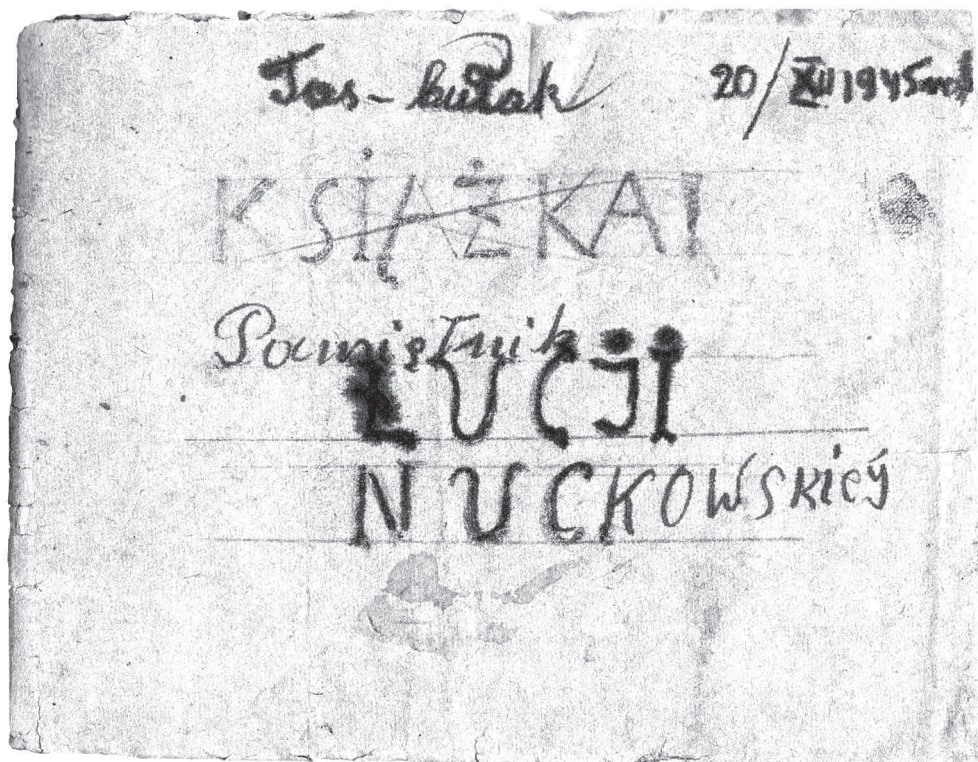 Tas-bułak 20/XII 1945 rok
KSIĄŻKA!
Pamiętnik
ŁUCJI
NUCKOWSKIEJ